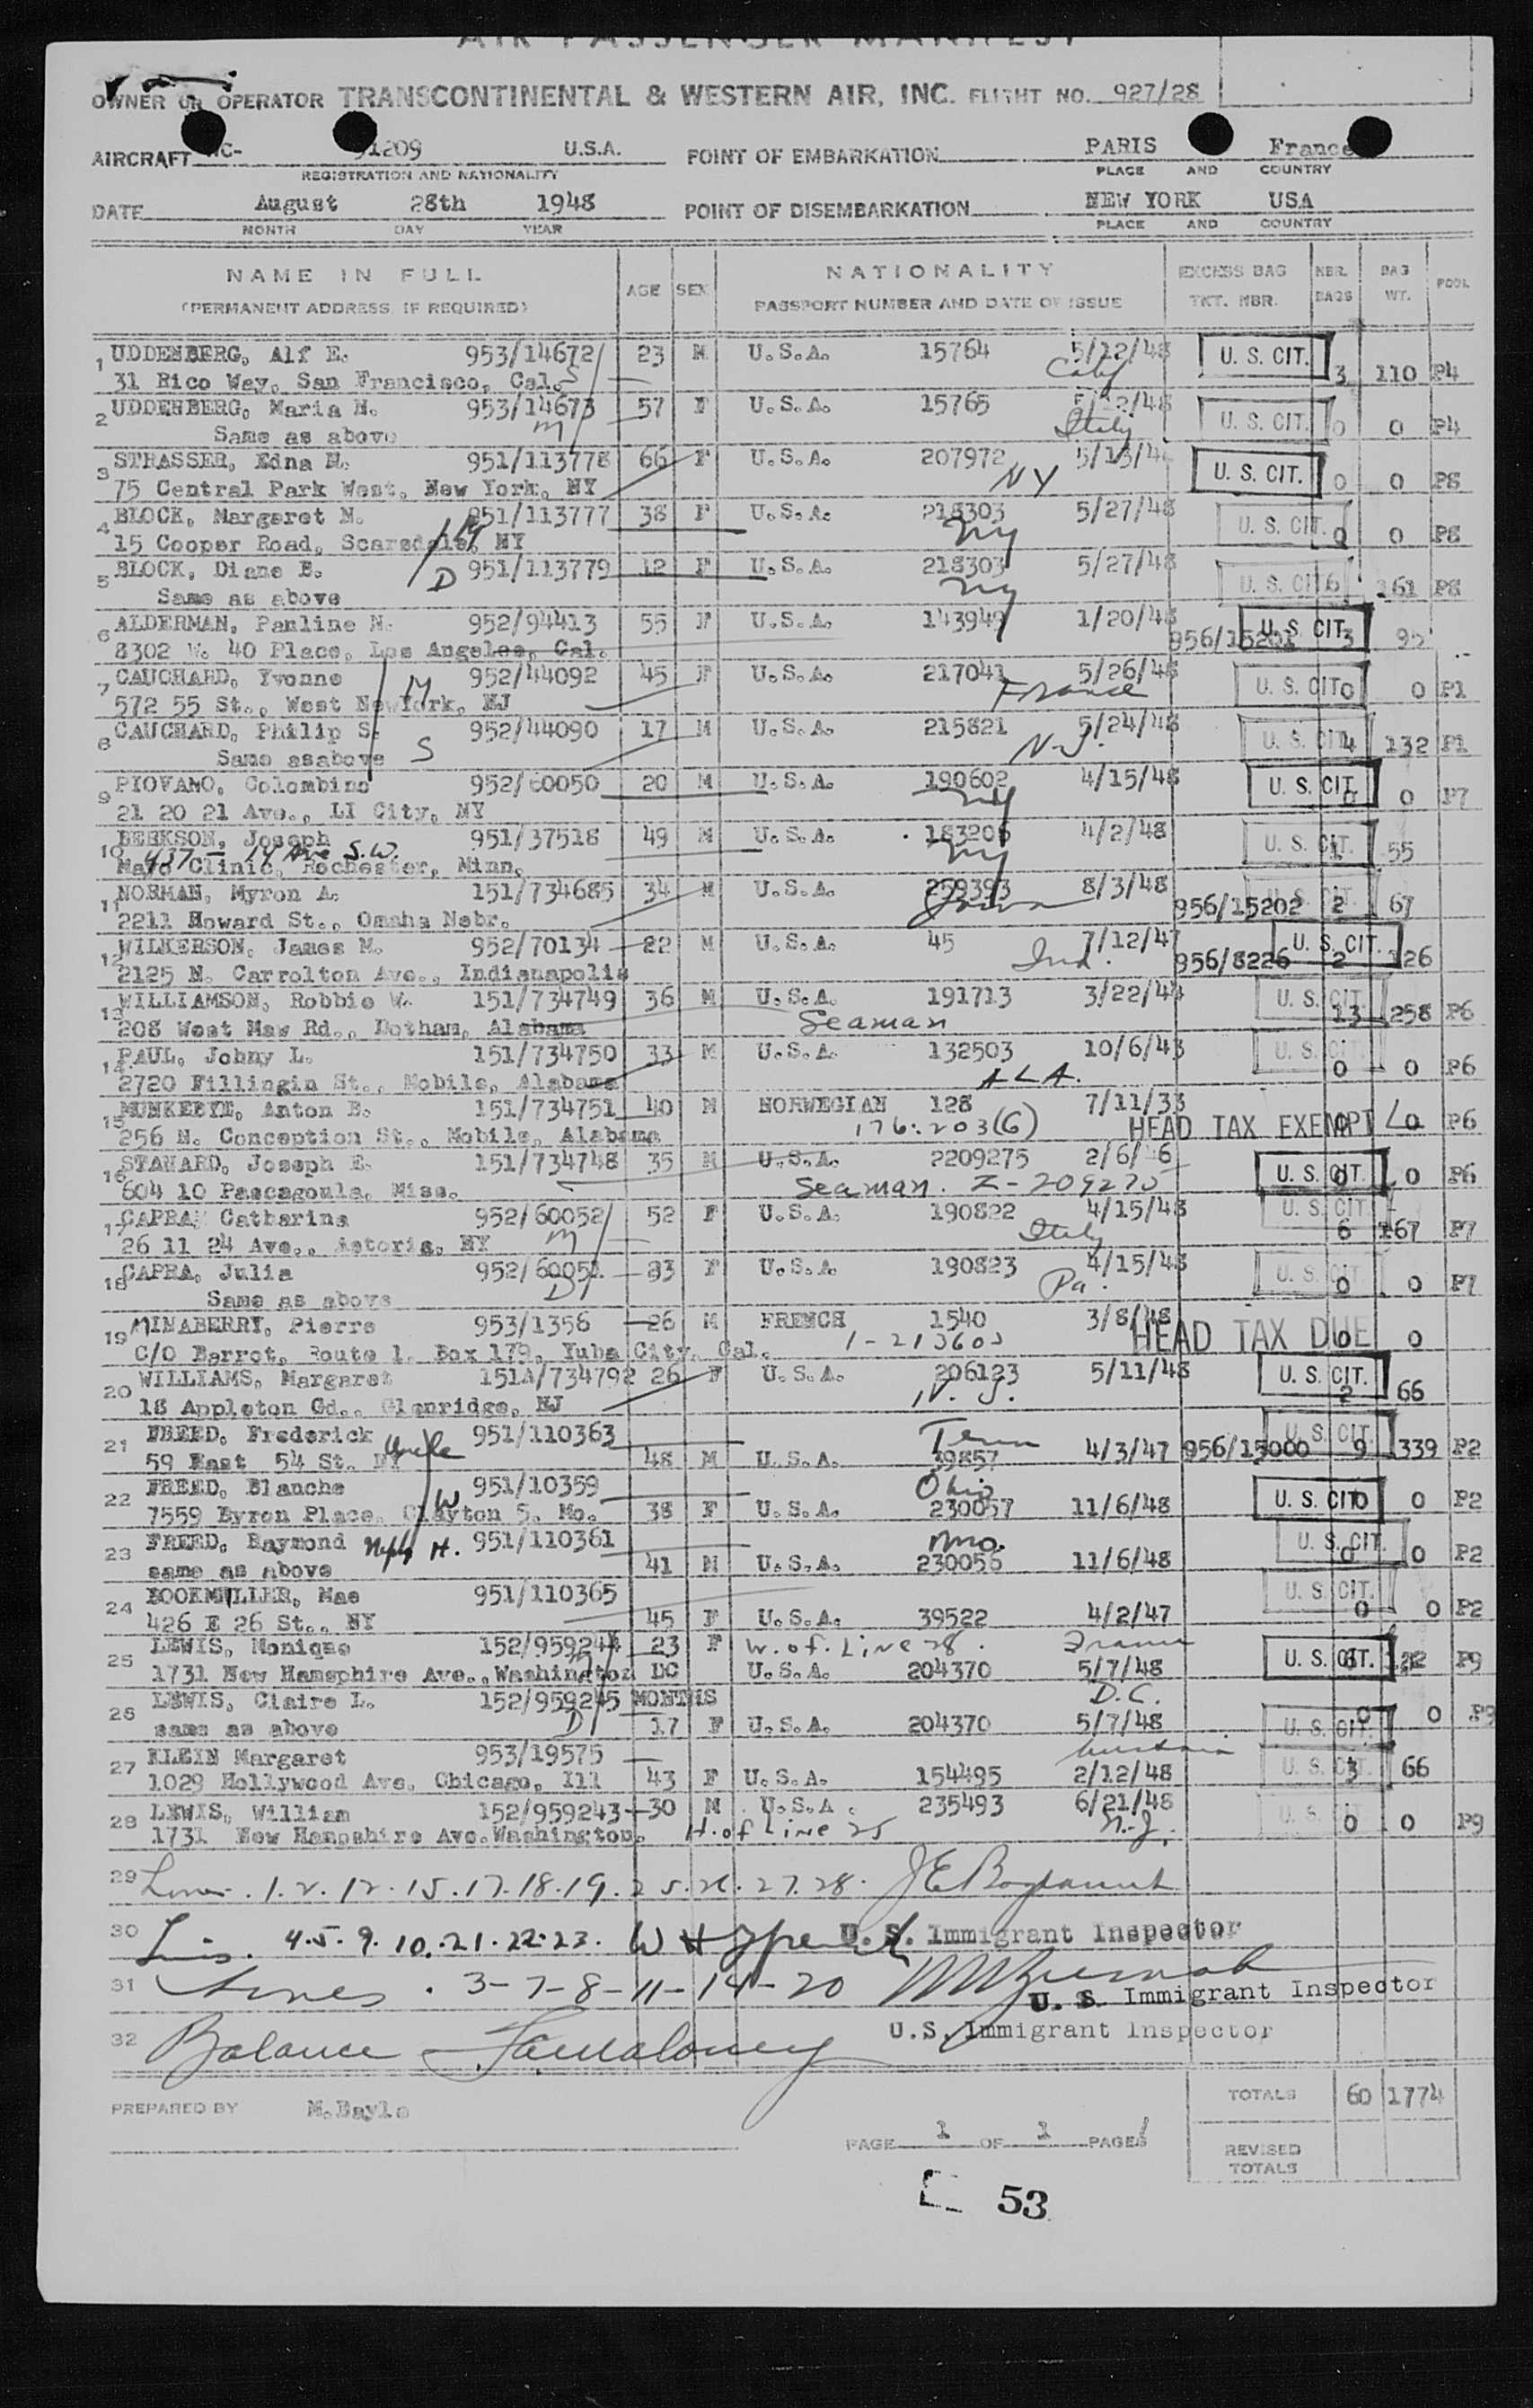 AIR PASSENGER MANIFEST
OWNER OR OPERATOR TRANSCONTINENTAL & WESTERN AIR, INC. FLIGHT NO. 927/28
AIRCRAFT NC- 91209 U.S.A. POINT OF EMBARKATION PARIS France
REGISTRATION AND NATIONALITY PLACE AND COUNTRY
DATE August 28th 1948 POINT OF DISEMBARKATION NEW YORK USA
MONTH DAY YEAR PLACE AND COUNTRY
NAME IN FULL AGE SEX NATIONALITY EXCESS BAG NBR. BAG POOL
(PERMANENT ADDRESS IF REQUIRED) PASSPORT NUMBER AND DATE OF ISSUE TKT. NBR. BAGS WT.
1 UDDENBERG, Alf E. 953/14672 23 M U.S.A. 15764 5/12/48 U. S. CIT.
31 Rico Way, San Francisco, Cal. S Calif 3 110 P4
2 UDDENBERG, Maria N. 953/14673 57 F U.S.A. 15765 5/12/48 U. S. CIT.
Same as above M Italy 0 0 P4
3 STRASSER, Edna M. 951/113778 66 F U.S.A. 207972 5/13/48 U. S. CIT.
75 Central Park West, New York, NY NY 0 0 P8
4 BLOCK, Margaret N. 951/113777 38 F U.S.A. 218303 5/27/48 U. S. CIT.
15 Cooper Road, Scarsdale, NY M NY 0 0 P8
5 BLOCK, Diane E. D 951/113779 12 F U.S.A. 218303 5/27/48 U. S. CIT.
Same as above NY 6 161 P8
6 ALDERMAN, Pauline N. 952/94413 55 F U.S.A. 143949 1/20/48 U. S. CIT.
8302 W. 40 Place, Los Angeles, Cal. 956/15201 3 95
7 CAUCHARD, Yvonne M 952/44092 45 F U.S.A. 217041 5/26/48 U. S. CIT.
572 55 St., West New York, NJ France 0 0 P1
8 CAUCHARD, Philip S. 952/44090 17 M U.S.A. 215821 5/24/48 U. S. CIT.
Same asabove S N.J. 4 132 P1
9 PIOVANO, Colombino 952/60050 20 M U.S.A. 190602 4/15/48 U. S. CIT.
21 20 21 Ave., LI City, NY NY 0 0 P7
10 BERKSON, Joseph 951/37518 49 M U.S.A. 183206 4/2/48 U. S. CIT.
437 - 14 Ave S.W.
Mayo Clinic, Rochester, Minn. NY 1 55
11 NORMAN, Myron A. 151/734685 34 M U.S.A. 259393 8/3/48 U. S. CIT.
2211 Howard St., Omaha Nebr. Iowa 956/15202 2 67
12 WILKERSON, James M. 952/70134 22 M U.S.A. 45 7/12/47 U. S. CIT.
2125 N. Carrolton Ave., Indianapolis Ind. 956/8226 2 126
13 WILLIAMSON, Robbie W. 151/734749 36 M U.S.A. 191713 3/22/44 U. S. CIT.
208 West Maw Rd., Dotham, Alabama Seaman 13 258 P6
14 PAUL, Johny L. 151/734750 33 M U.S.A. 132503 10/6/43 U. S. CIT.
2720 Fillingin St., Mobile, Alabama ALA. 0 0 P6
15 MUNKEBYE, Anton B. 151/734751 40 M NORWEGIAN 128 7/11/33
256 N. Conception St., Mobile, Alabama 176.203(6) HEAD TAX EXEMPT 0 0 P6
16 STANARD, Joseph E. 151/734748 35 M U.S.A. 2209275 2/6/46 U. S. CIT.
604 10 Pascagoula, Miss. Seaman. Z-209275 0 0 P6
17 CAPRA, Catharina 952/60052 52 F U.S.A. 190822 4/15/48 U. S. CIT.
26 11 24 Ave., Astoria, NY M Italy 6 167 P7
18 CAPRA, Julia 952/60051 23 F U.S.A. 190823 4/15/48 U. S. CIT.
Same as above D Pa. 0 0 P7
19 MINABERRY, Pierre 953/1356 26 M FRENCH 1540 3/8/48
C/O Barrot, Route 1, Box 179, Yuba City, Cal. 1-213603 HEAD TAX DUE 0 0
20 WILLIAMS, Margaret 151A/734792 26 F U.S.A. 206123 5/11/48 U. S. CIT.
18 Appleton Gd., Glenridge, NJ N. J. 2 66
21 FREED, Frederick Uncle 951/110363 Tenn U. S. CIT.
59 East 54 St. NY 48 M U.S.A. 39857 4/3/47 956/15000 9 339 P2
22 FREED, Blanche W 951/10359 Ohio
7559 Byron Place, Clayton 5, Mo. 38 F U.S.A. 230057 11/6/48 U. S. CIT. 0 0 P2
23 FREED, Raymond Neph H. 951/110361 Mo. U. S. CIT.
same as above 41 M U.S.A. 230056 11/6/48 0 0 P2
24 BOOKMULLER, Mae 951/110365 U. S. CIT.
426 E 26 St., NY 45 F U.S.A. 39522 4/2/47 0 0 P2
25 LEWIS, Monique 152/959244 23 F W. of. Line 28. France
1731 New Hamsphire Ave., Washington DC M U.S.A. 204370 5/7/48 U. S. CIT. 6 122 P9
26 LEWIS, Claire L. 152/959245 MONTHS D.C.
same as above D 17 F U.S.A. 204370 5/7/48 U. S. CIT. 0 0 P9
27 KLEIN Margaret 953/19575 Austria
1029 Hollywood Ave, Chicago, Ill 43 F U.S.A. 154495 2/12/48 U. S. CIT. 3 66
28 LEWIS, William 152/959243 30 M U.S.A. 235493 6/21/48 U. S. CIT.
1731 New Hampshire Ave. Washington. H. of Line 25 N.J. 0 0 P9
29 Lines. 1. 2. 12. 15. 17. 18. 19. 25. 26. 27. 28.
30 Lines. 4.5.9.10.21.22.23. U. S. Immigrant Inspector
31 Lines. 3-7-8-11-14-20 U. S. Immigrant Inspector
32 Balance U.S. Immigrant Inspector
PREPARED BY M.Bayle TOTALS 60 1774
PAGE 1 OF 1 PAGES
REVISED
TOTALS
53